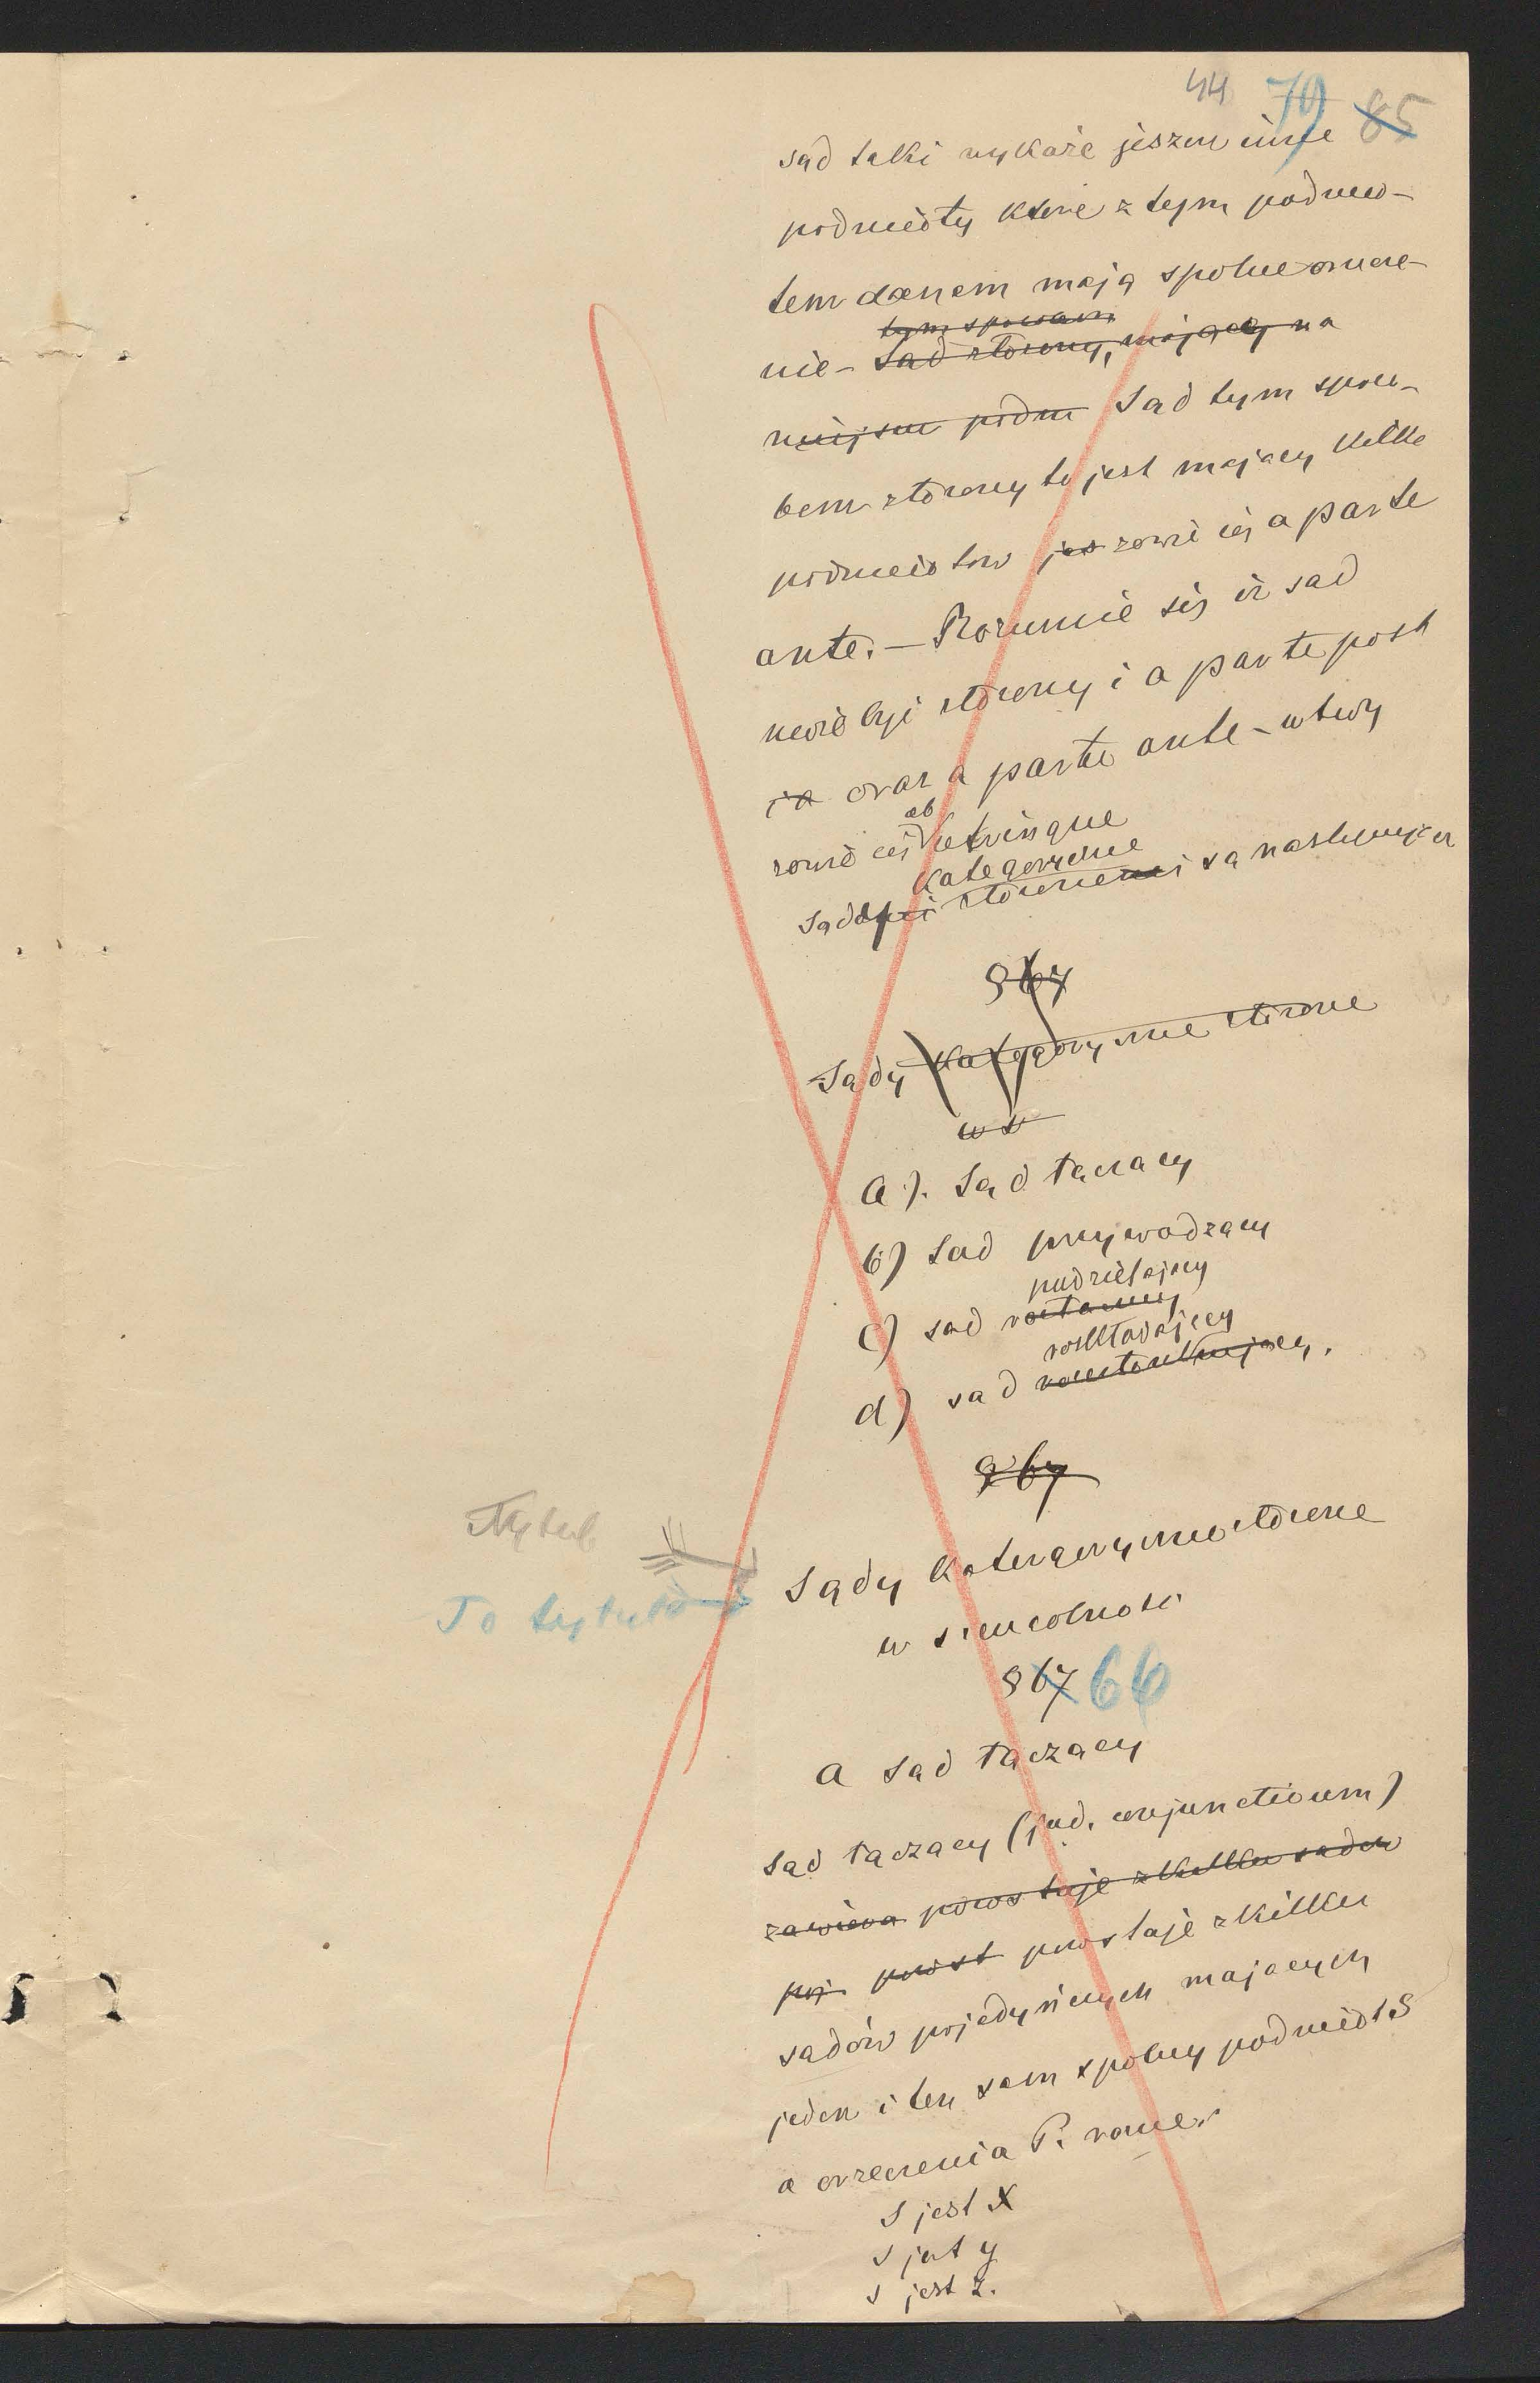 44 79 85
sąd taki wykaże jeszcze inne
podmioty które z tym podmio-
tem danem mają spolne orzecze-
nie – tym sposobem
Sąd złożony, mający na
miejscu podm Sąd tym sposo-
bem złożony to jest mający kilka
podmiotow jes zowie się a parte
ante. – Rozumie się iż sąd
może być złożony i a parte post
i a oraz a parte ante – wtedy
zowie się ab utrinque
kategoryczne
Sądy złożone są następujące
§ 67
Sądy kategoryczne złożone
w s
a). Sąd łączący
b) Sąd przywodzący
podzielający
c) sąd
rozkładający
d) sąd
§ 67
Tytuł
To tytuł
Sądy kategoryczne złożone
w szczególności
§ 67 66
a Sąd łączący
Sąd łączący (jud. conjunctivum)
zawiera powstaje z kilku sądow
poj powst powstaje z kilku
sądów pojedyńczych mających
jeden i ten sam spolny podmiot S
a orzeczenia P. rożne.
S jest X
S jest y
S jest z.